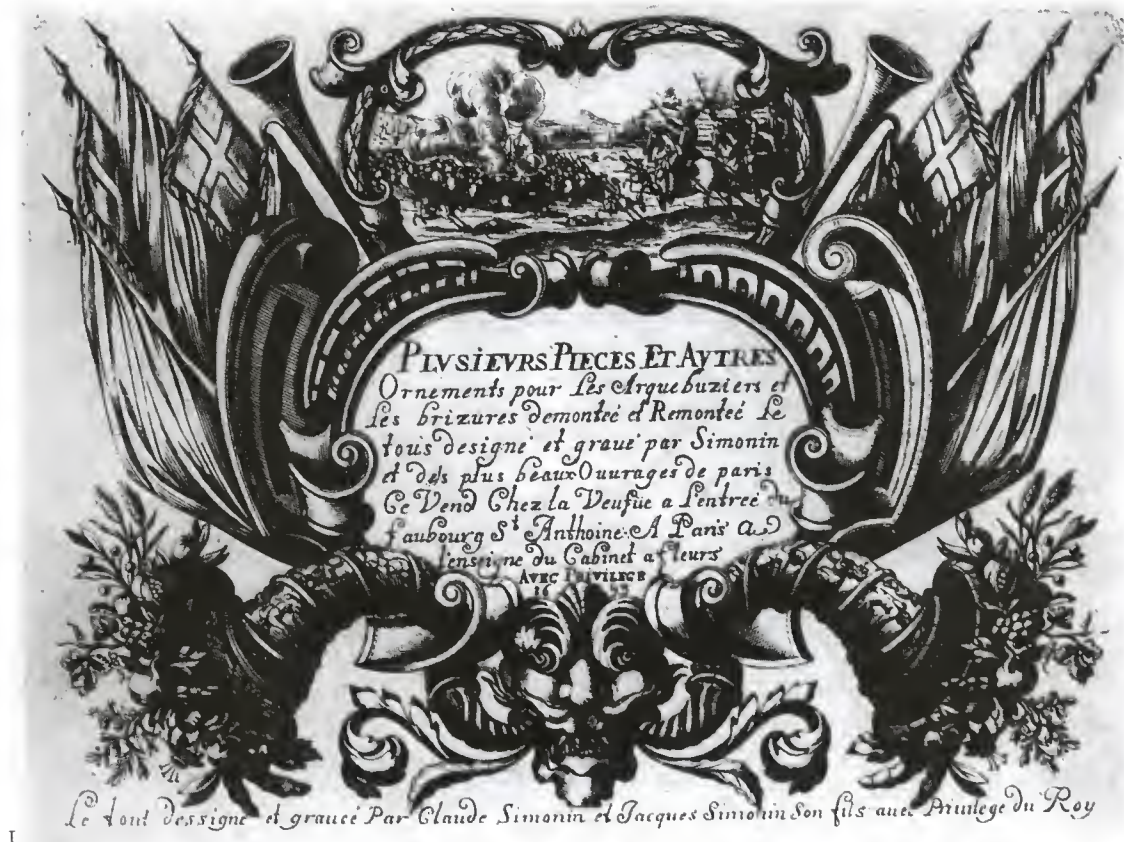 PLVSIEVRS PIECES ET AVTRES
Ornements pour Les Arquebuziers et
Les brizures demonteé et Remonteé Le
tous designé et graué par Simonin
et des plus beaux Ouurages de paris
Ce Vend Chez la Veufue a l'entreé du
faubourg St Anthoine. A Paris a
l'enseigne du Cabinet a fleurs
AVEC PRIVILEGE
16 93
Le tout dessigné et graueé Par Claude Simonin et Jacques Simonin Son fils auec Priuilege du Roy
I